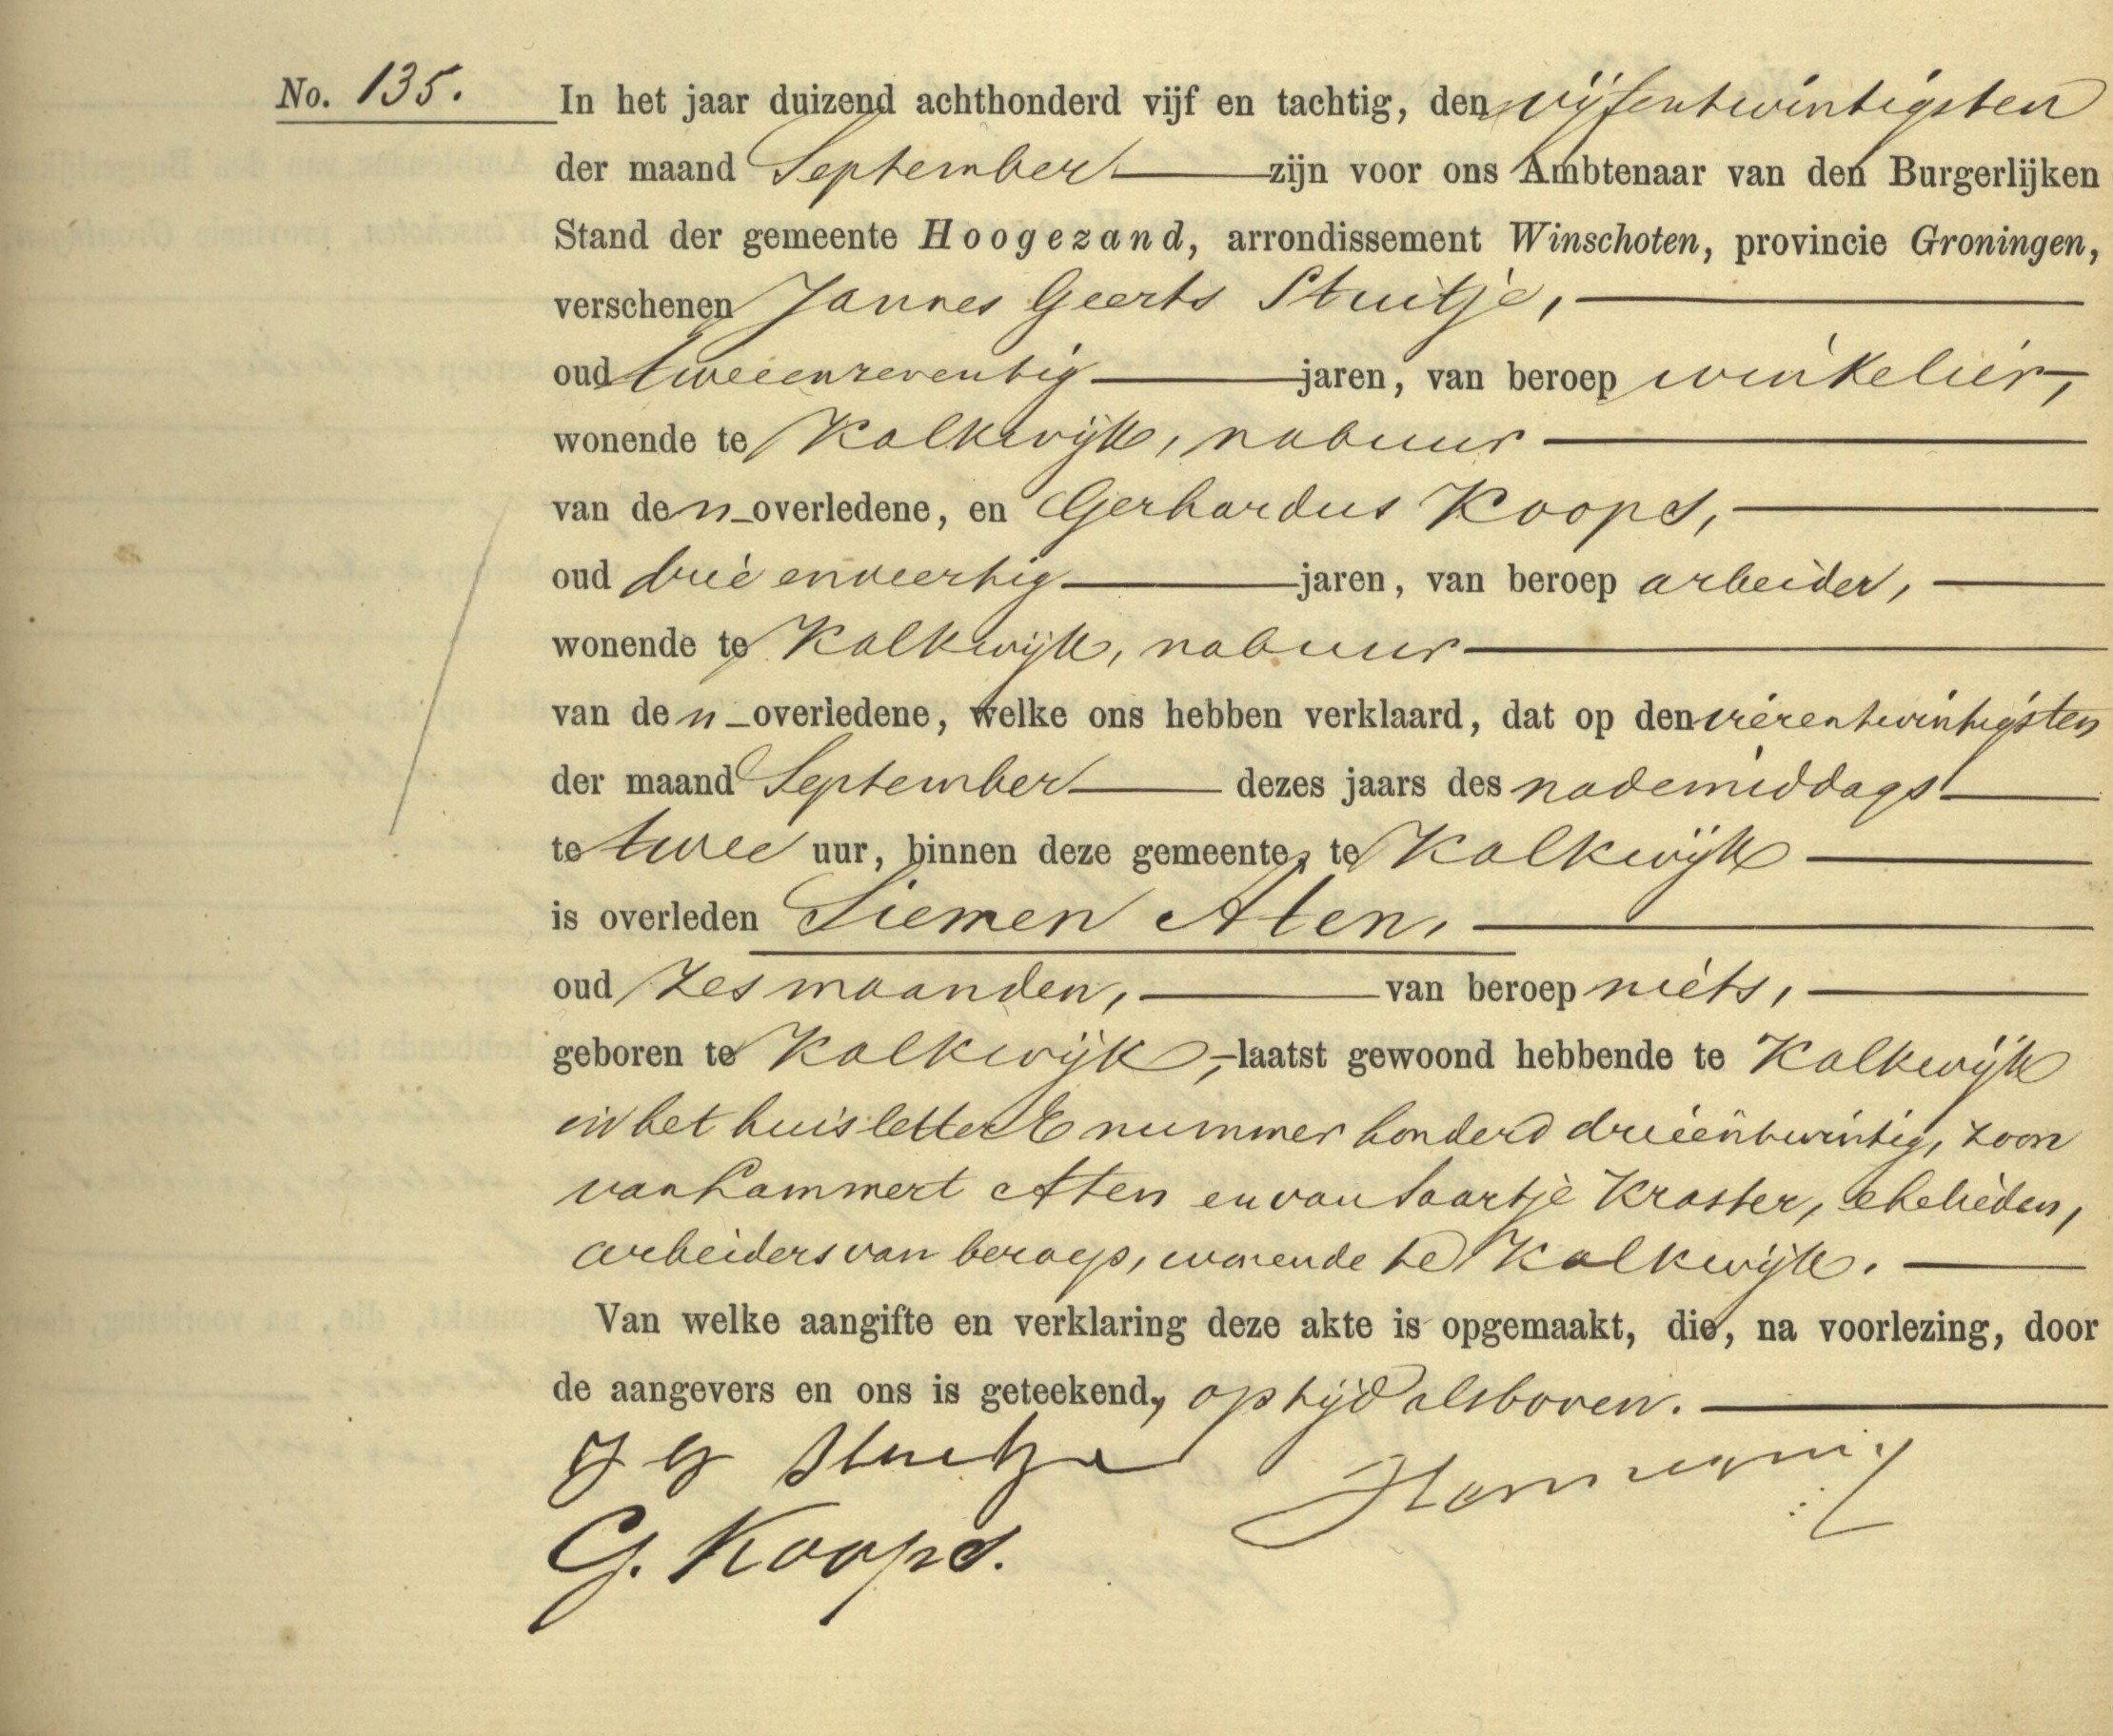 No. 135.
In het jaar duizend achthonderd vijf en tachtig, den vijfentwintigsten
der maand September zijn voor ons Ambtenaar van den Burgerlijken
Stand der gemeente Hoogezand, arrondissement Winschoten, provincie Groningen,
verschenen Jannes Geerts Stuitje,
oud tweeenzeventig jaren, van beroep winkelier,
wonende te Kalkwijk, nabuur
van den overledene, en Gerhardus Koops,
oud drieenveertig jaren, van beroep arbeider,
wonende te Kalkwijk, nabuur
van den overledene, welke ons hebben verklaard, dat op den vierentwintigsten
der maand September dezes jaars des nademiddags
te twee uur, binnen deze gemeente, te Kalkwijk
is overleden Siemen Aten,
oud zes maanden, van beroep niets,
geboren te Kalkwijk, laatst gewoond hebbende te Kalkwijk
in het huis letter E nummer honderd drieëntwintig, zoon
van Lammert Aten en van Taartje Kraster, ehelieden,
arbeiders van beroep, wonende te Kalkwijk.
Van welke aangifte en verklaring deze akte is opgemaakt, die, na voorlezing, door
de aangevers en ons is geteekend, op tijd als boven.
J G Stuitje
G. Koops.